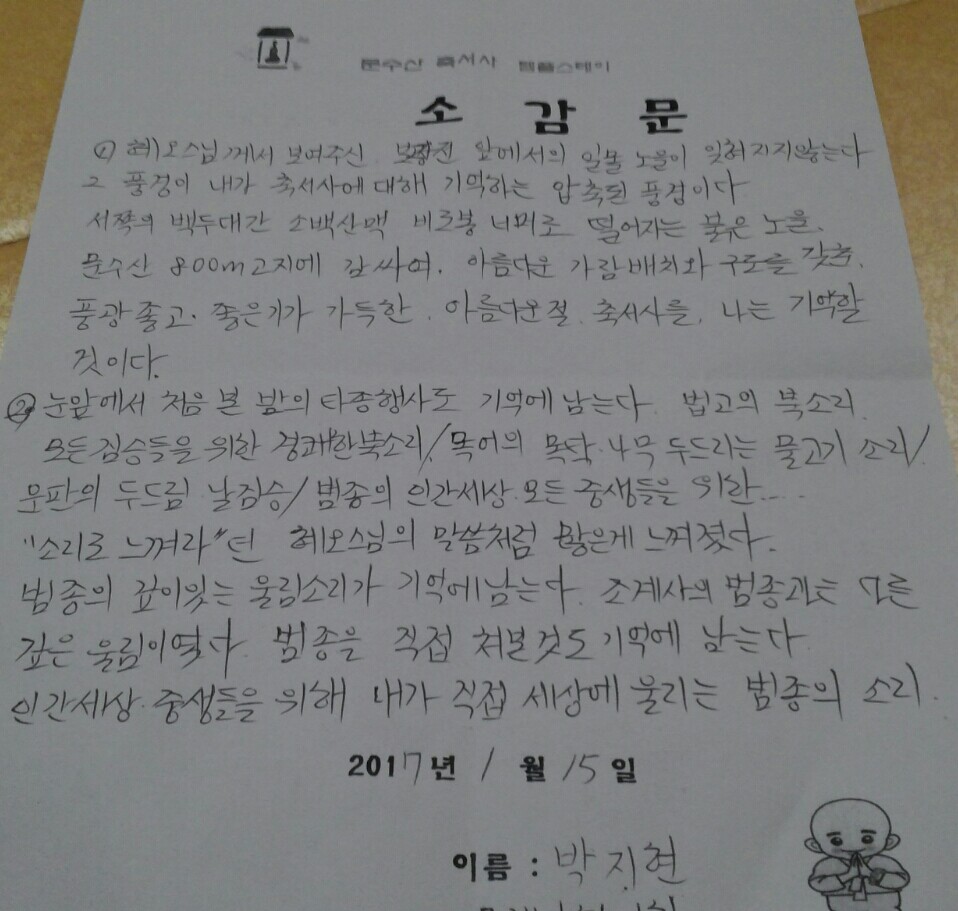 문수산 축서사 템플스테이
소 감 문
① 혜오스님께서 보여주신 보광전 앞에서의 일몰 노을이 잊혀지지않는다
그 풍경이 내가 축서사에대해 기억하는 압축된 풍경이다
서쪽의 백두대간 소백산맥 비로봉 너머로 떨어지는 붉은 노을.
문수산 800m고지에 감싸여. 아름다운 가람배치와 구도를 갖춘.
풍광좋고. 좋은기가 가득한. 아름다운절. 축서사를. 나는 기억할
것이다.
② 눈앞에서 처음 본 밤의 타종행사도 기억에 남는다. 법고의 북소리.
모든짐승들을 위한 경쾌한북소리/목어의 목탁. 나무 두드리는 물고기 소리/
운판의 두드림. 날짐승/ 범종의 인간세상.모든 중생들을 위한....
"소리로 느껴라"던 혜오스님의 말씀처럼 많은게 느껴졌다.
범종의 깊이있는 울림소리가 기억에남는다. 조계사의 범종과는 다른
깊은 울림이였다. 범종을 직접 쳐본것도 기억에 남는다.
인간세상.중생들을 위해 내가 직접 세상에 울리는 범종의 소리.
2017년 1월 15일
이름 : 박지현